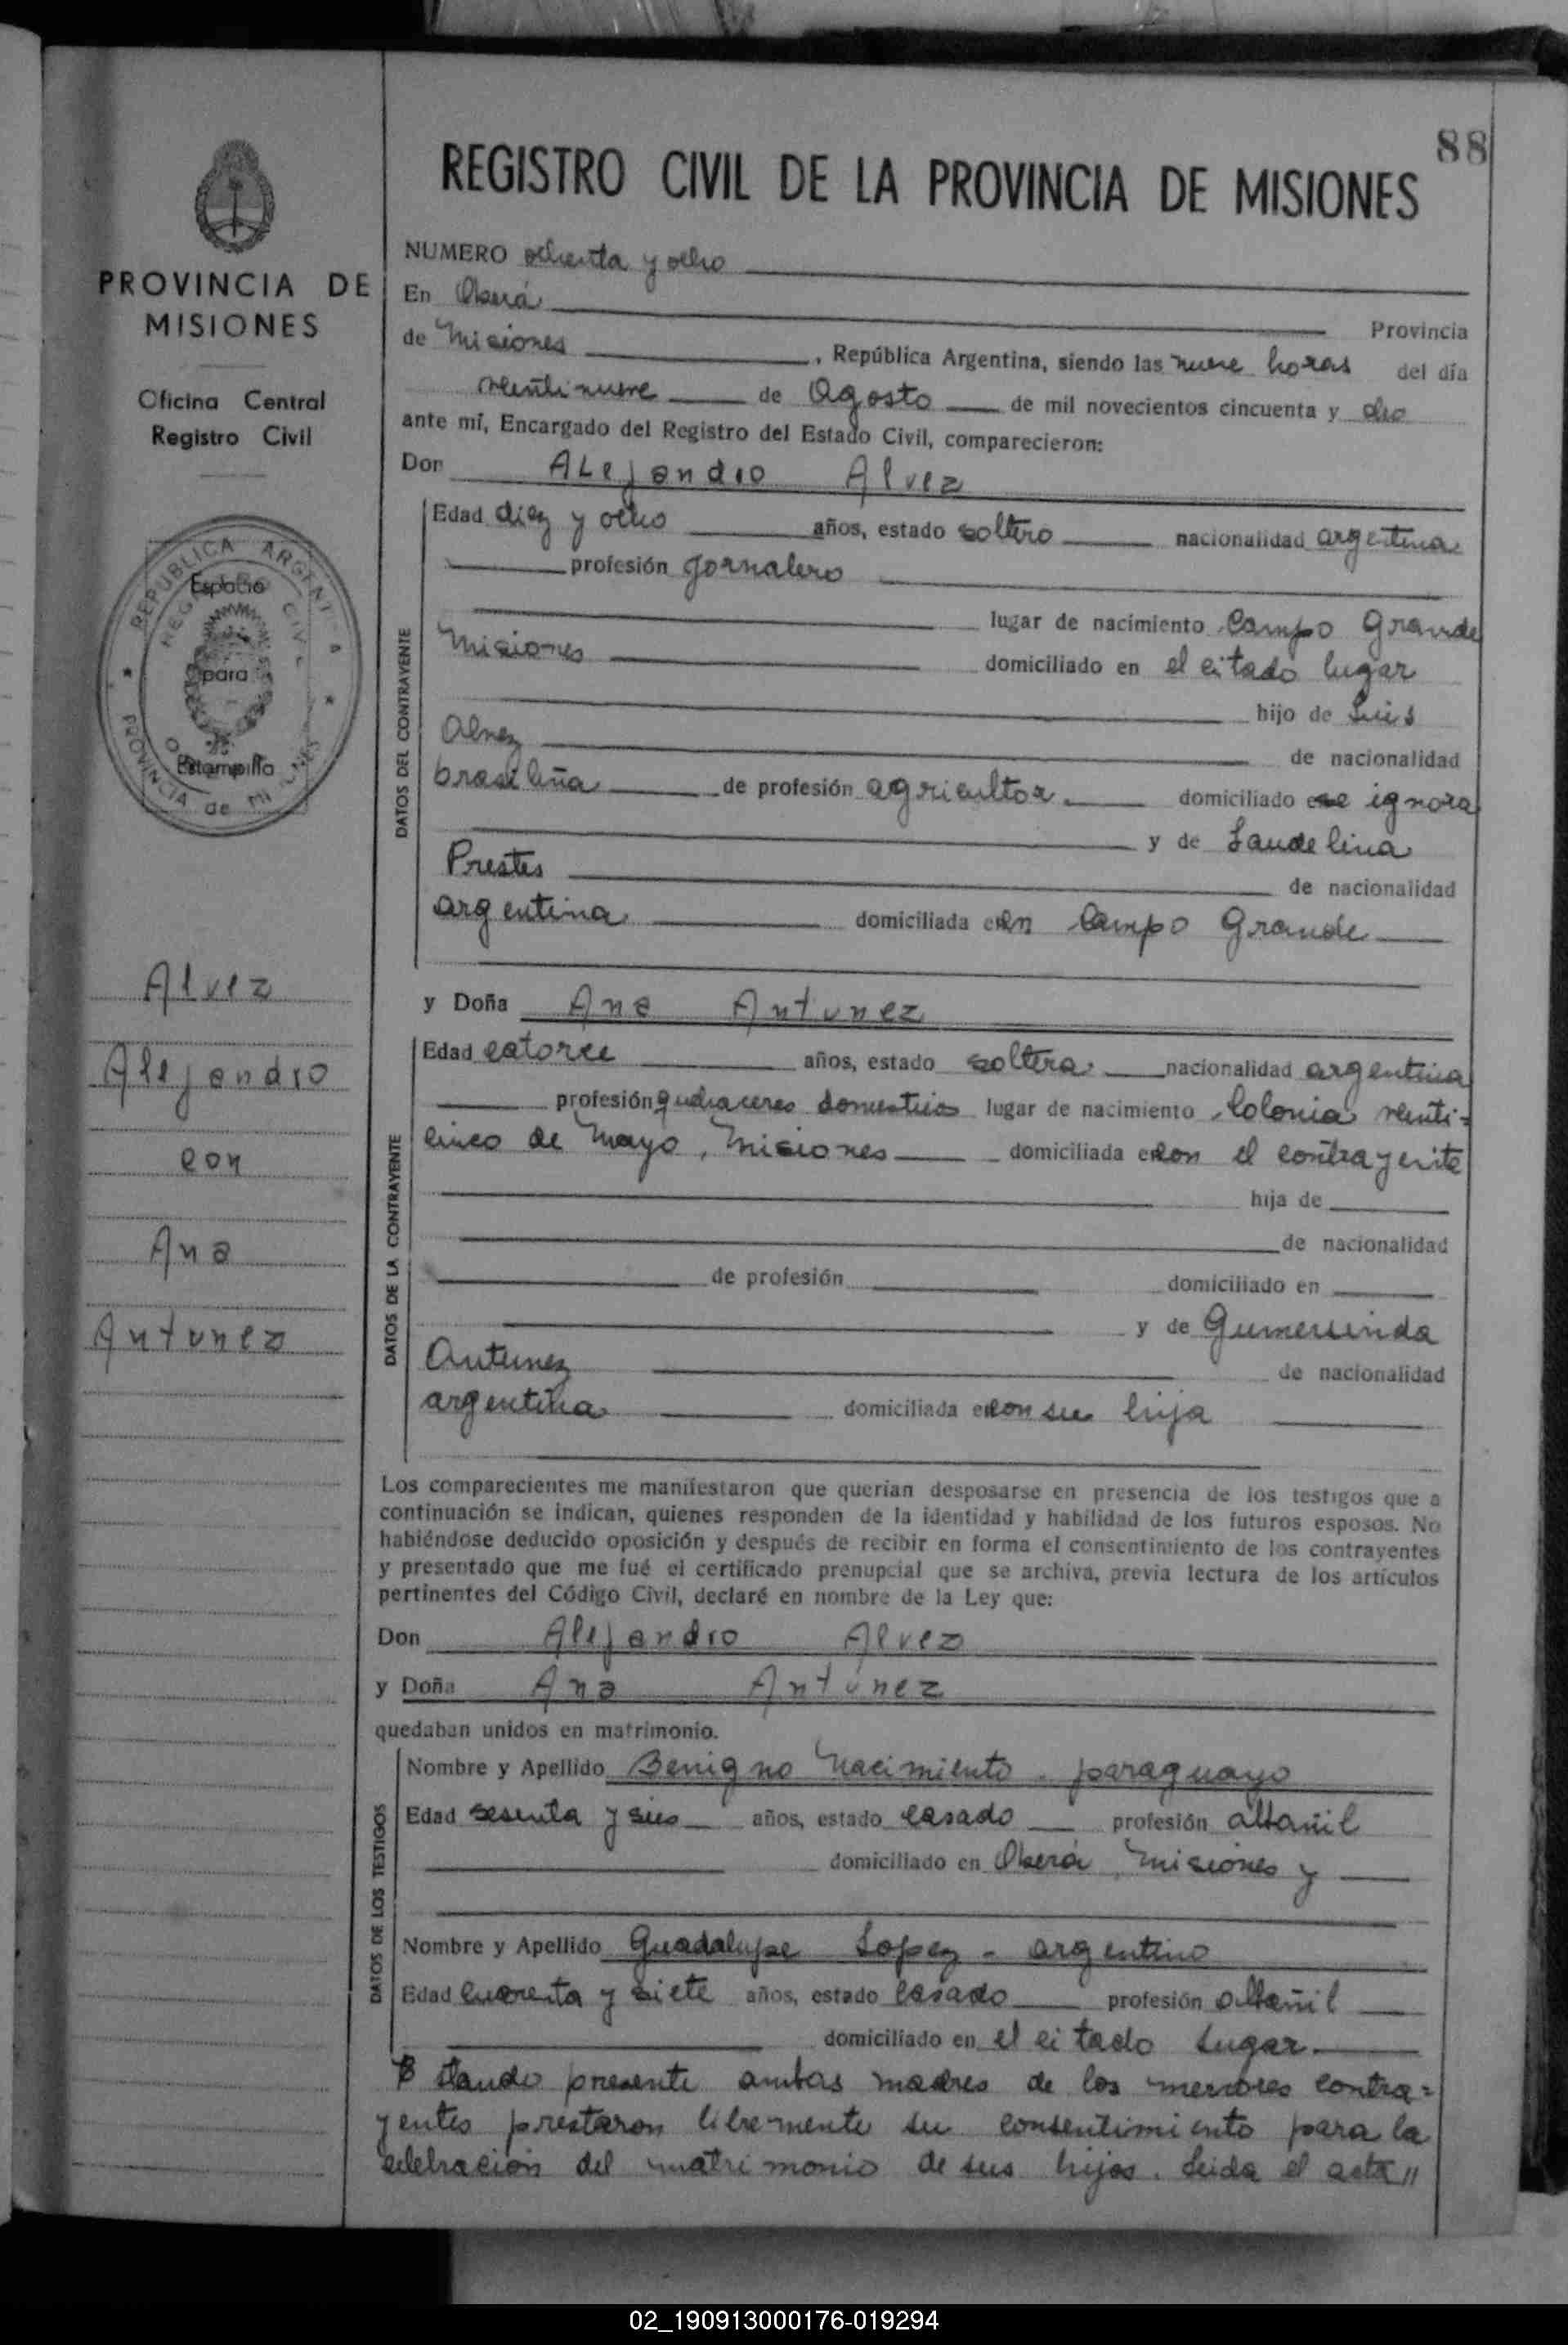 88
REGISTRO CIVIL DE LA PROVINCIA DE MISIONES
PROVINCIA DE
MISIONES
Oficina Central
Registro Civil
REPUBLICA ARGENTINA
REGISTRO CIVIL
Espacio
para
Estampilla
PROVINCIA de MISIONES
Alvez
Alejandro
con
Ana
Antunez
NUMERO ochenta y ocho
En Oberá Provincia
de Misiones , República Argentina, siendo las nueve horas del día
veintinueve de Agosto de mil novecientos cincuenta y ocho
ante mí, Encargado del Registro del Estado Civil, comparecieron:
Don Alejandro Alvez
DATOS DEL CONTRAYENTE
Edad diez y ocho años, estado soltero nacionalidad argentina
profesión jornalero
lugar de nacimiento Campo Grande
Misiones domiciliado en el citado lugar
hijo de Luis
Alvez de nacionalidad
brasileña de profesión agricultor domiciliado se ignora
y de Laudelina
Prestes de nacionalidad
argentina domiciliada en Campo Grande
y Doña Ana Antunez
DATOS DE LA CONTRAYENTE
Edad catorce años, estado soltera nacionalidad argentina
profesión quehaceres domesticos lugar de nacimiento Colonia veinti=
cinco de Mayo, Misiones domiciliada con el contrayente
hija de
de nacionalidad
de profesión domiciliado en
y de Gumersinda
Antunez de nacionalidad
argentina domiciliada con su hija
Los comparecientes me manifestaron que querían desposarse en presencia de los testigos que a
continuación se indican, quienes responden de la identidad y habilidad de los futuros esposos. No
habiéndose deducido oposición y después de recibir en forma el consentimiento de los contrayentes
y presentado que me fué el certificado prenupcial que se archiva, previa lectura de los artículos
pertinentes del Código Civil, declaré en nombre de la Ley que:
Don Alejandro Alvez
y Doña Ana Antúnez
quedaban unidos en matrimonio.
DATOS DE LOS TESTIGOS
Nombre y Apellido Benigno Nacimiento - paraguayo
Edad sesenta y seis años, estado casado profesión albañil
domiciliado en Oberá, Misiones y
Nombre y Apellido Guadalupe Lopez - argentino
Edad cuarenta y siete años, estado casado profesión albañil
domiciliado en el citado lugar.
Estando presente ambas madres de los menores contra=
yentes prestaron libremente su consentimiento para la
celebración del matrimonio de sus hijos. Leida el acta //
02_190913000176-019294